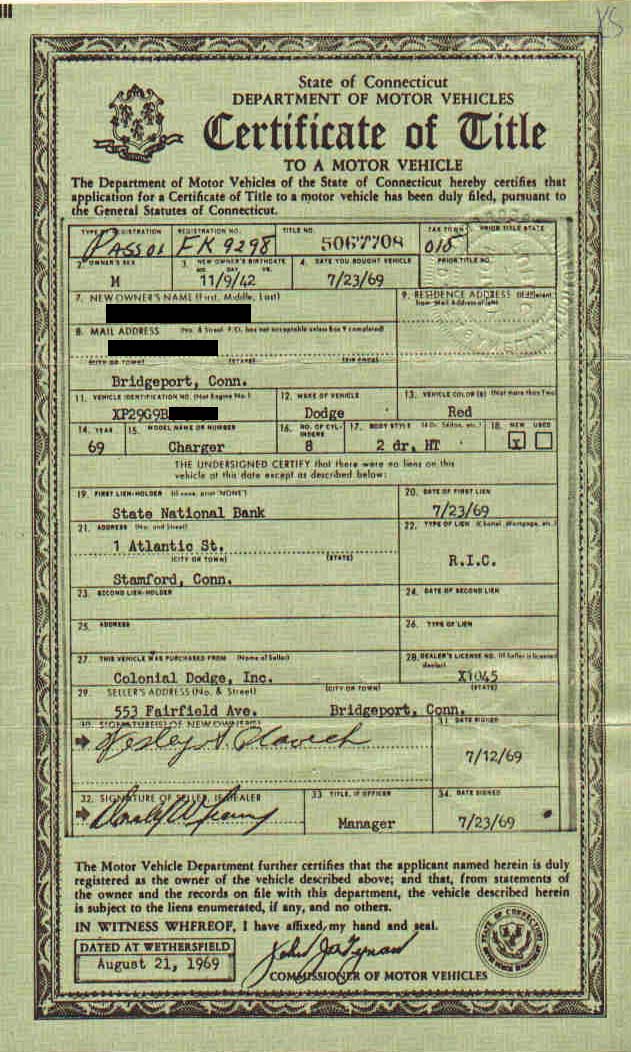 State of Connecticut
DEPARTMENT OF MOTOR VEHICLES
Certificate of Title
TO A MOTOR VEHICLE
The Department of Motor Vehicles of the State of Connecticut hereby certifies that
application for a Certificate of Title to a motor vehicle has been duly filed, pursuant to
the General Statutes of Connecticut.
REGISTRATION NO. TITLE NO. TAX TOWN PRIOR TITLE STATE
PASS 01 FK 9298 5067708 015
2. OWNER'S SEX 3. NEW OWNER'S BIRTHDATE 4. DATE YOU BOUGHT VEHICLE PRIOR TITLE NO.
MO. DAY YR.
M 11/9/42 7/23/69
7. NEW OWNER'S NAME (First, Middle, Last) 9. RESIDENCE ADDRESS (If different
from Mail Address at left)
8. MAIL ADDRESS (No. & Street P.O. box not acceptable unless Box 9 completed)
(CITY OR TOWN) (STATE) (ZIP CODE)
Bridgeport, Conn.
11. VEHICLE IDENTIFICATION NO. (Not Engine No.) 12. MAKE OF VEHICLE 13. VEHICLE COLOR(S) (Not more than Two)
XP29G9B Dodge Red
14. YEAR 15. MODEL NAME OR NUMBER 16. NO. OF CYL-INDERS 17. BODY STYLE (4 Dr. Sedan, etc.) 18. NEW USED
69 Charger 8 2 dr. HT X
THE UNDERSIGNED CERTIFY that there were no liens on this
vehicle at this date except as described below:
19. FIRST LIEN-HOLDER (If none, print "NONE") 20. DATE OF FIRST LIEN
State National Bank 7/23/69
21. ADDRESS (No. and Street) 22. TYPE OF LIEN (Chattel Mortgage, etc.)
1 Atlantic St.
(CITY OR TOWN) (STATE) R.I.C.
Stamford, Conn.
23. SECOND LIEN-HOLDER 24. DATE OF SECOND LIEN
25. ADDRESS 26. TYPE OF LIEN
27. THIS VEHICLE WAS PURCHASED FROM (Name of Seller) 28. DEALER'S LICENSE NO. (If Seller is licensed
dealer)
Colonial Dodge, Inc. X1045
29. SELLER'S ADDRESS (No. & Street) (CITY OR TOWN) (STATE)
553 Fairfield Ave. Bridgeport, Conn.
30. SIGNATURE(S) OF NEW OWNER(S) 31. DATE SIGNED
7/12/69
32. SIGNATURE OF SELLER, IF DEALER 33. TITLE, IF OFFICER 34. DATE SIGNED
Manager 7/23/69
The Motor Vehicle Department further certifies that the applicant named herein is duly
registered as the owner of the vehicle described above; and that, from statements of
the owner and the records on file with this department, the vehicle described herein
is subject to the liens enumerated, if any, and no others.
IN WITNESS WHEREOF, I have affixed my hand and seal.
DATED AT WETHERSFIELD
August 21, 1969
COMMISSIONER OF MOTOR VEHICLES